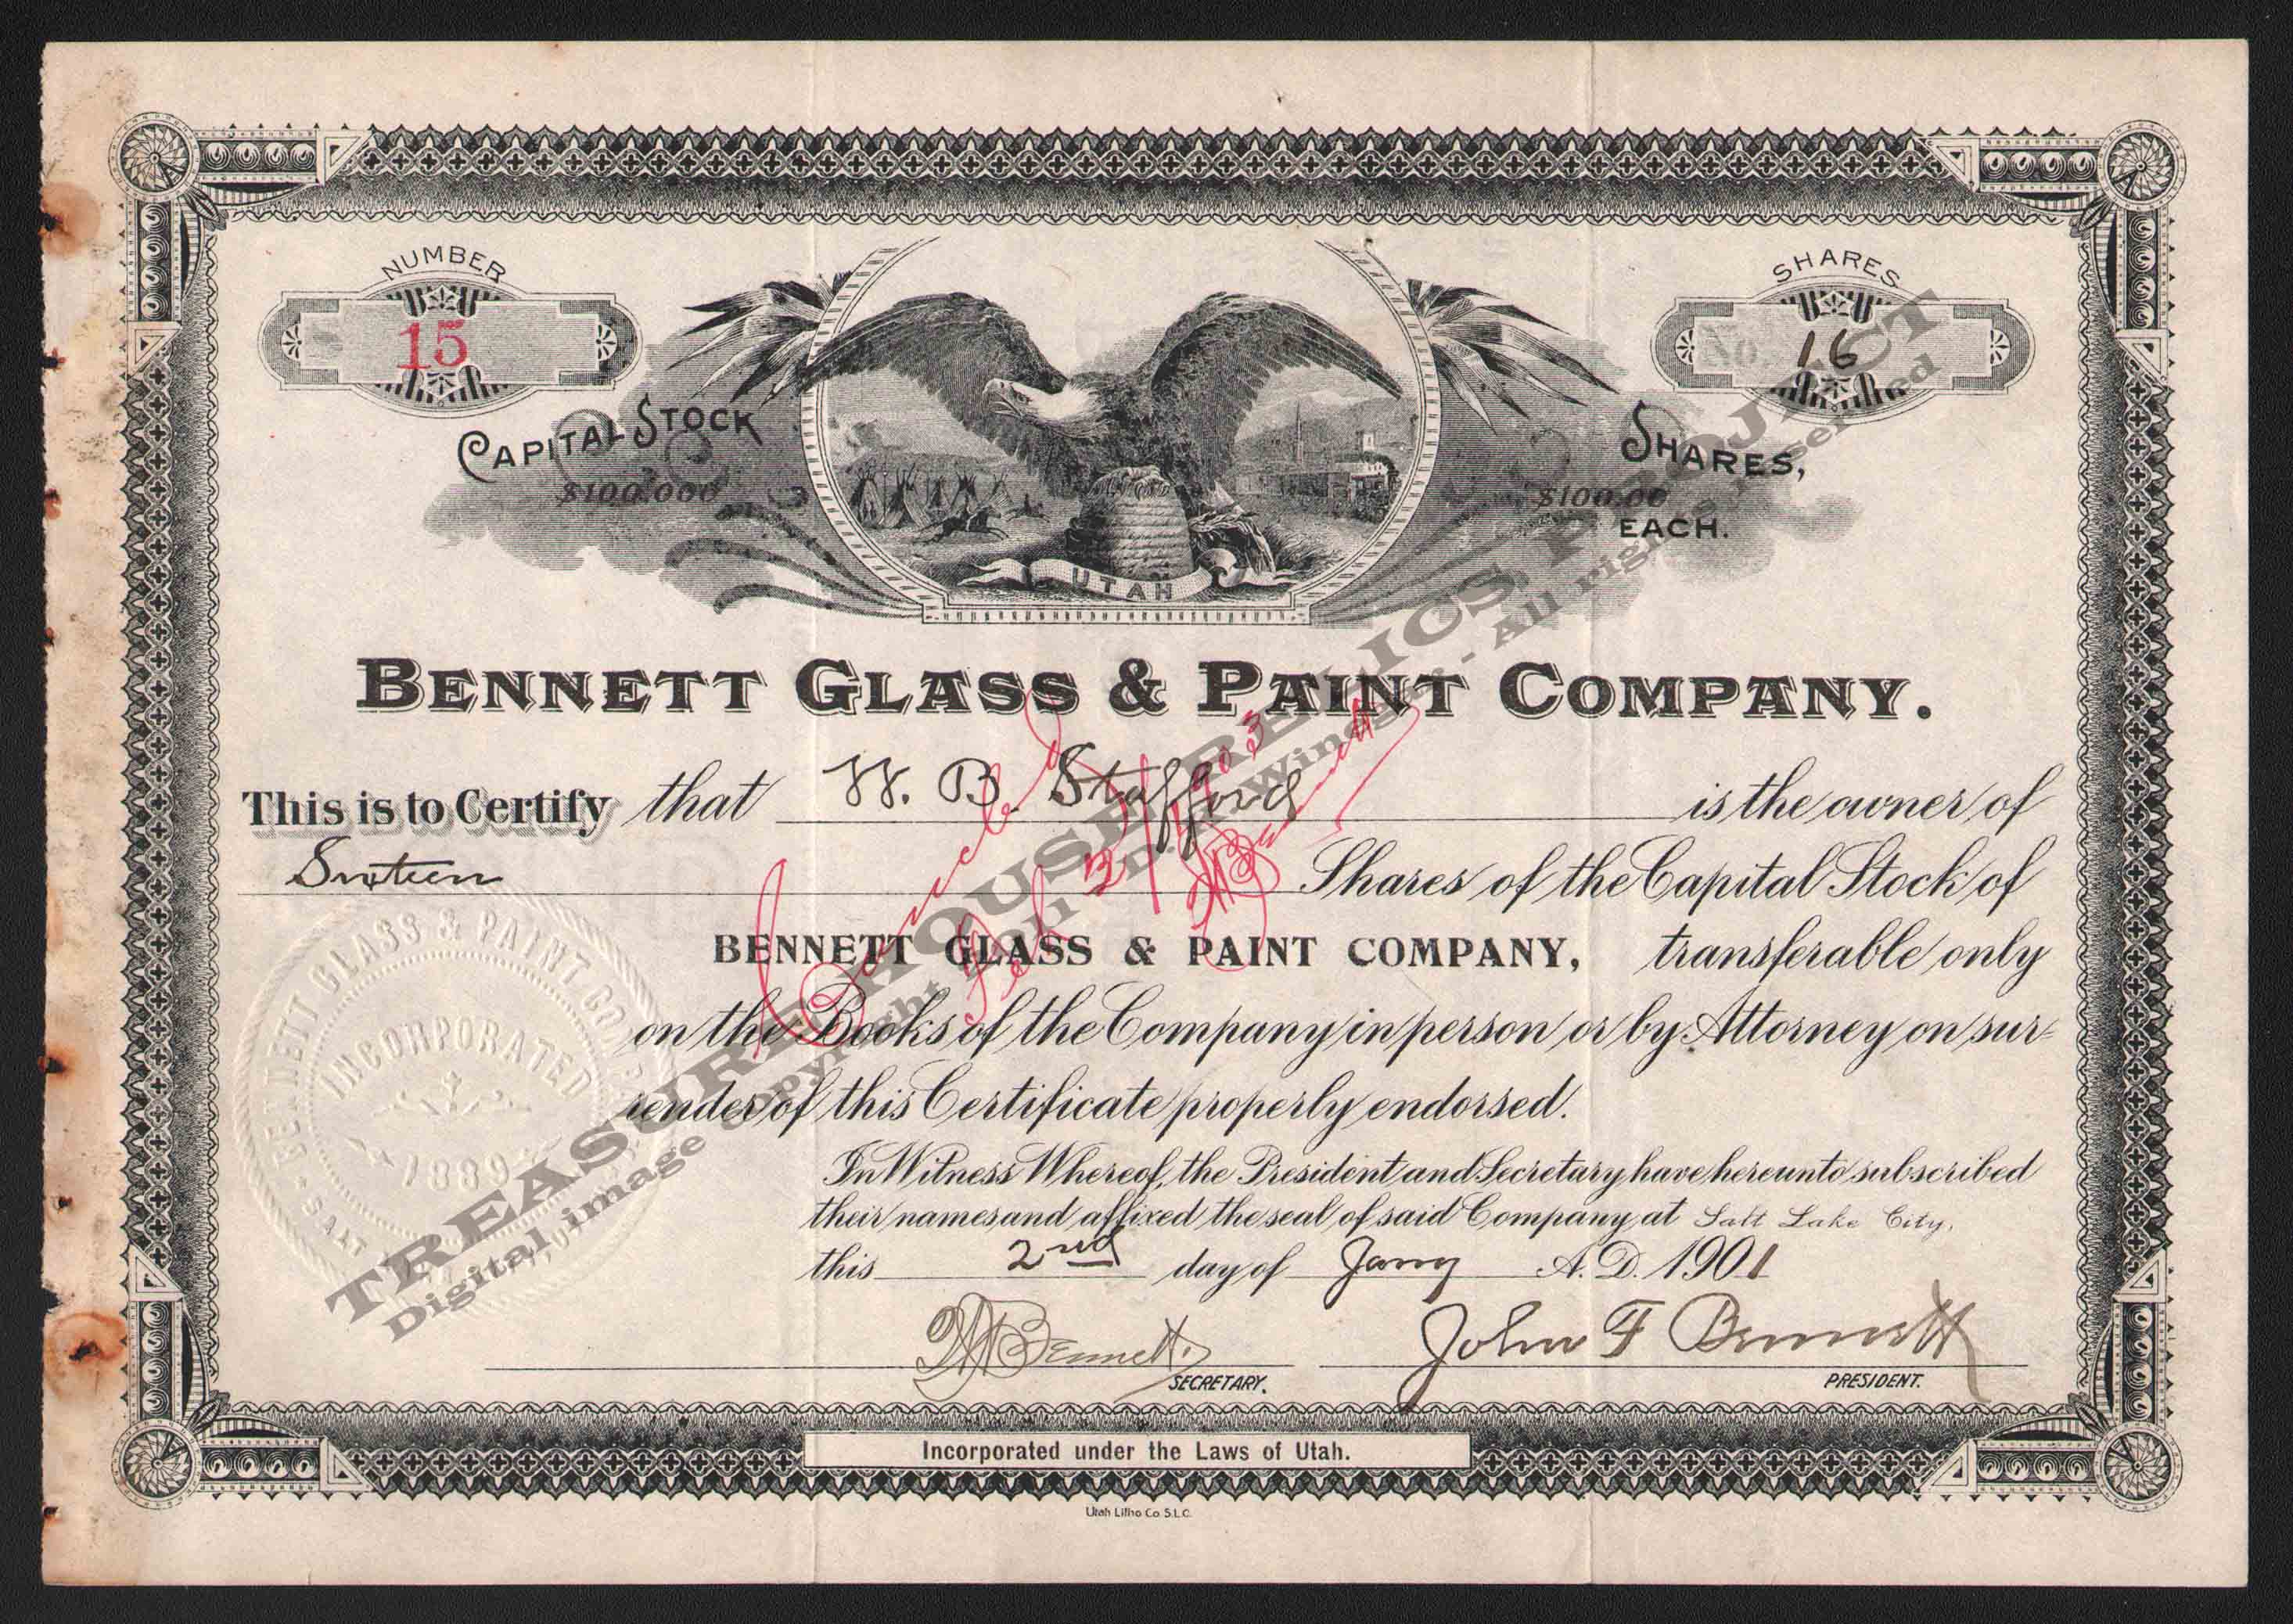 NUMBER
15
SHARES
16
CAPITAL STOCK
$100,000
SHARES,
$100.00
EACH.
UTAH
BENNETT GLASS & PAINT COMPANY.
This is to Certify that W. B. Stafford is the owner of
Sixteen Shares of the Capital Stock of
BENNETT GLASS & PAINT COMPANY, transferable only
on the Books of the Company in person or by Attorney on sur-
render of this Certificate properly endorsed.
In Witness Whereof, the President and Secretary have hereunto subscribed
their names and affixed the seal of said Company at Salt Lake City,
this 2nd day of Jany A.D. 1901
Bennett
SECRETARY.
John F Bennett
PRESIDENT.
Incorporated under the Laws of Utah.
Utah Litho Co. S.L.C.
Canceled
Feb 3/1903
Bennett
BENNETT GLASS & PAINT CO
INCORPORATED
1889
SALT
TREASURE HOUSE RELICS PROJECT
Digital image copyright - All rights reserved